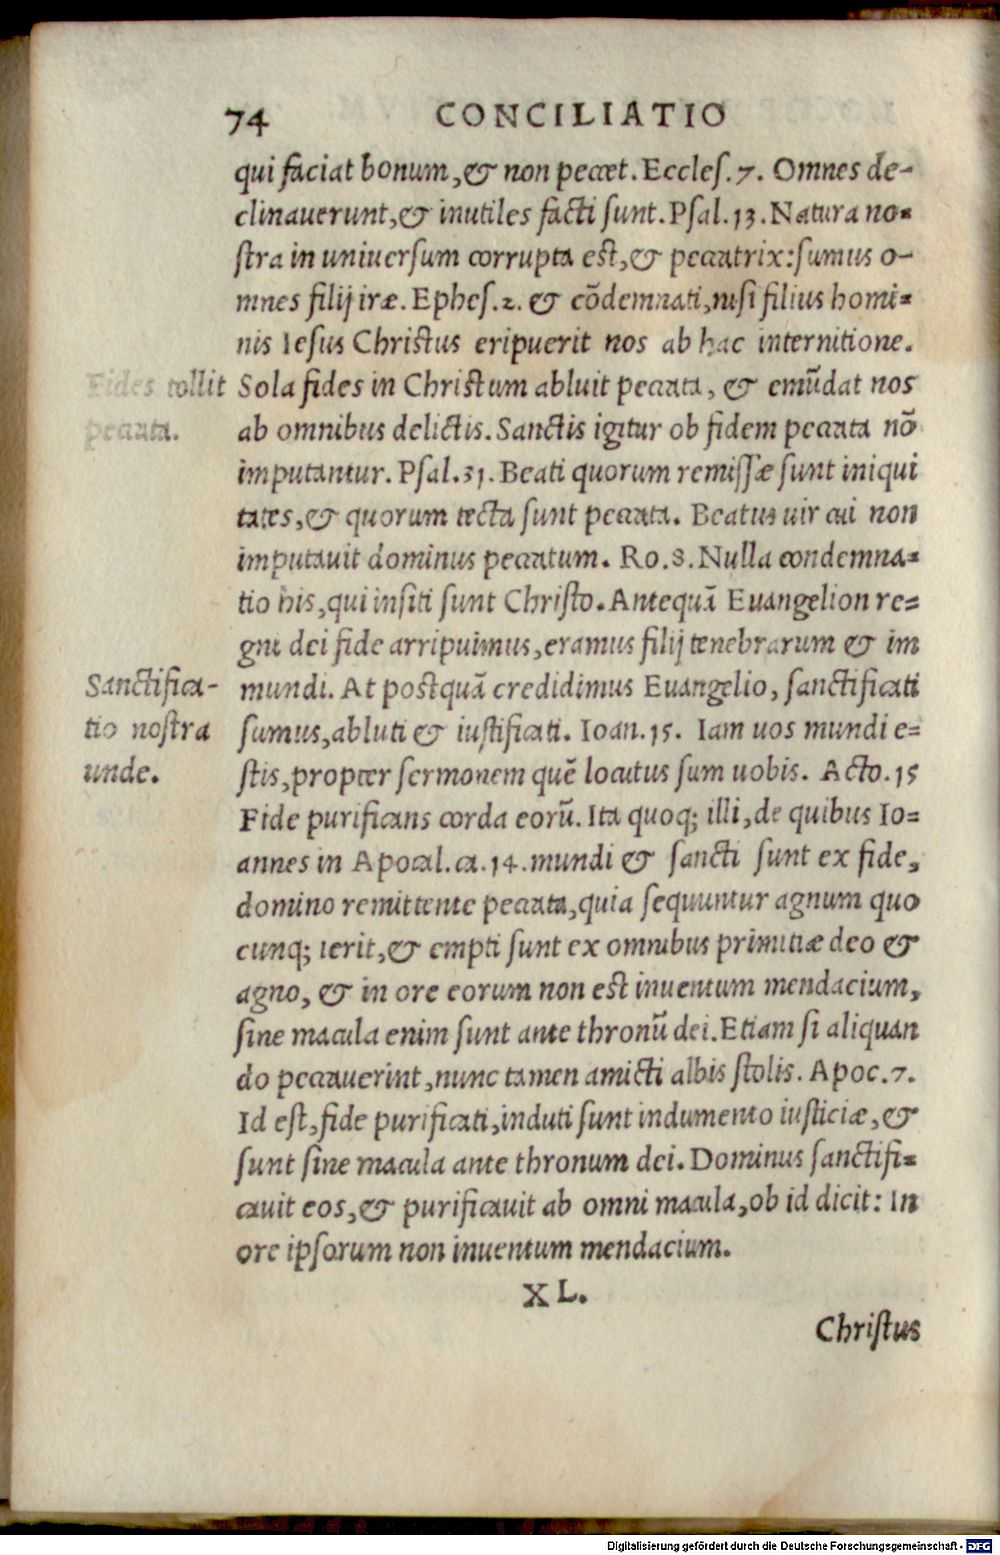 74 CONCILIATIO
qui faciat bonum, & non peccet. Eccles. 7. Omnes de-
clinauerunt, & inutiles facti sunt. Psal. 13. Natura no-
stra in uniuersum corrupta est, & peccatrix: sumus o-
mnes filij iræ. Ephes. 2. & cōdemnati, nisi filius homi-
nis Iesus Christus eripuerit nos ab hac internitione.
Fides tollit
peccata.
Sola fides in Christum abluit peccata, & emūdat nos
ab omnibus delictis. Sanctis igitur ob fidem peccata nō
imputantur. Psal. 31. Beati quorum remissæ sunt iniqui
tates, & quorum tecta sunt peccata. Beatus uir cui non
imputauit dominus peccatum. Ro. 8. Nulla condemna-
tio his, qui insiti sunt Christo. Antequā Euangelion re-
gni dei fide arripuimus, eramus filij tenebrarum & im
Sanctifica-
tio nostra
unde.
mundi. At postquā credidimus Euangelio, sanctificati
sumus, abluti & iustificati. Ioan. 15. Iam uos mundi e-
stis, propter sermonem quē locutus sum uobis. Acto. 15
Fide purificans corda eorū. Ita quoq; illi, de quibus Io-
annes in Apocal. ca. 14. mundi & sancti sunt ex fide,
domino remittente peccata, quia sequuntur agnum quo
cunq; ierit, & empti sunt ex omnibus primitiæ deo &
agno, & in ore eorum non est inuentum mendacium,
sine macula enim sunt ante thronū dei. Etiam si aliquan
do peccauerint, nunc tamen amicti albis stolis. Apoc. 7.
Id est, fide purificati, induti sunt indumento iusticiæ, &
sunt sine macula ante thronum dei. Dominus sanctifi-
cauit eos, & purificauit ab omni macula, ob id dicit: In
ore ipsorum non inuentum mendacium.
XL.
Christus
Digitalisierung gefördert durch die Deutsche Forschungsgemeinschaft - DFG